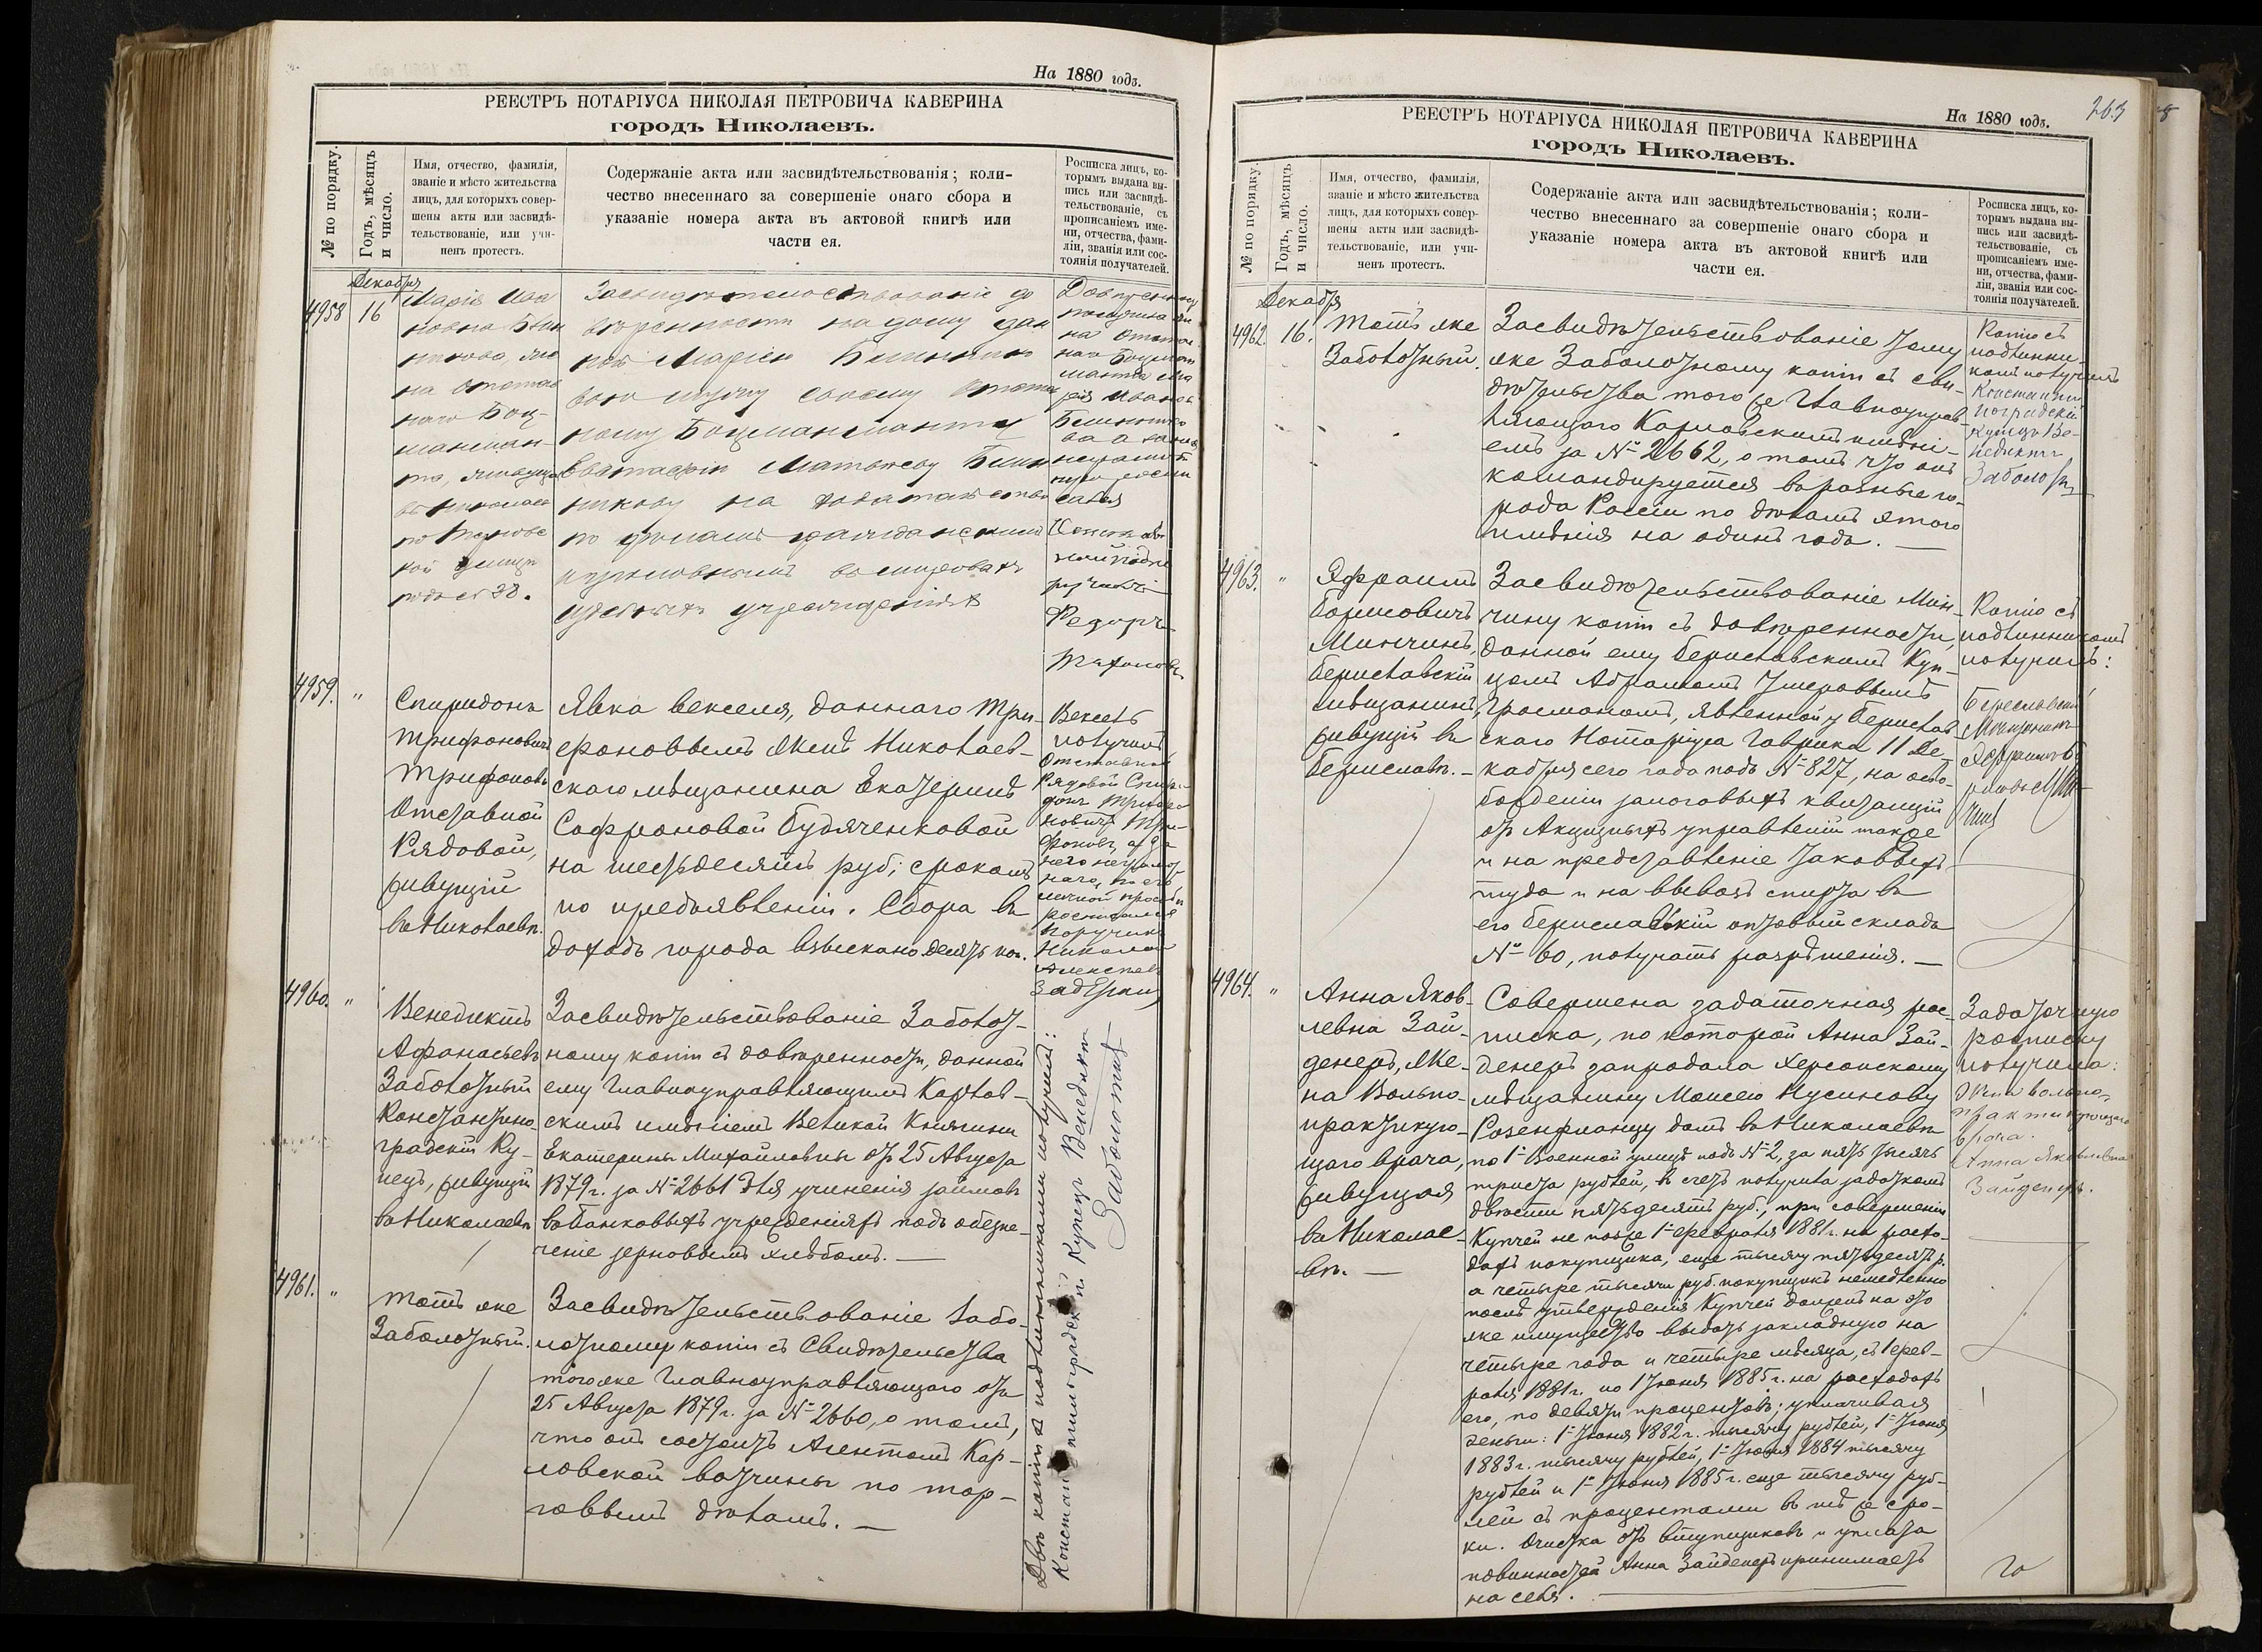 На 1880 годъ.
РЕЕСТРЪ НОТАРІУСА НИКОЛАЯ ПЕТРОВИЧА КАВЕРИНА
городъ Николаевъ.
№ по порядку.
Годъ, мѣсяцъ
и число.
Имя, отчество, фамилія,
званіе и мѣсто жительства
лицъ, для которыхъ совер-
шены акты или засвидѣ-
тельствованіе, или учи-
ненъ протестъ.
Содержаніе акта или засвидѣтельствованія; коли-
чество внесеннаго за совершеніе онаго сбора и
указаніе номера акта въ актовой книгѣ или
части ея.
Росписка лицъ, ко-
торымъ выдана вы-
пись или засвидѣ-
тельствованіе, съ
прописаніемъ име-
ни, отчества, фами-
ліи, званія или сос-
тоянія получателей.
Декабря
4958
16
Марія Ива
новна
на отстав
наго Боц-
манман-
та, живущая
въ Николаевѣ
Засвидѣтельствованіе до
вѣренности на дому дан
ной Маріею
вою мужу своему отстав
ному Боцманманту
Матвѣеву
никову на ходатайство
по дѣламъ гражданскимъ
уголовнымъ
учрежденіяхъ
Довѣренность
получила
на отстав
наго Боцман
манта Ма
рія Ивановна
Федоръ
4959.
"
Спиридонъ
Трифоновичъ
Трифоновъ
Отставной
Рядовой,
живущій
въ Николаевѣ.
Явка векселя, даннаго Три-
фоновымъ женѣ Николаев-
скаго мѣщанина Екатеринѣ
Софроновой Будяченковой
на шестьдесятъ руб; срокомъ
по предъявленіи. Сбора въ
доходъ города взыскано десять коп.
Вексель
получилъ
Отставной
Рядовой Спири-
донъ Трифо
новичъ Три-
фоновъ, а за
него неграмот
наго, по его
личной просьбѣ
росписался
Поручикъ
Николай
Алексѣевъ
4960.
"
Венедиктъ
Афанасьевъ
Заболотный
Константино
градскій Ку-
пецъ, живущій
въ Николаевѣ
Засвидѣтельствованіе Заболот-
ному копіи съ довѣренности, данной
ему Главноуправляющимъ Карлов-
скимъ имѣніемъ Великой Княгини
Екатерины Михайловны отъ 25 Августа
1879 г. за № 2661 для учиненія займовъ
въ банковыхъ учрежденіяхъ подъ обезпе-
ченіе зерновымъ хлѣбомъ. —
4961.
"
Тотъ же
Заболотный.
Засвидѣтельствованіе Забо-
лотному копіи съ Свидѣтельства
того же Главноуправляющаго отъ
25 Августа 1879 г. за № 2660, о томъ,
что онъ состоитъ Агентомъ Кар-
ловской вотчины по тор-
говымъ дѣламъ. —
Двѣ копіи съ подлинниками получилъ:
Константиноградскій Купецъ Венедиктъ
Заболотный
263
На 1880 годъ.
РЕЕСТРЪ НОТАРІУСА НИКОЛАЯ ПЕТРОВИЧА КАВЕРИНА
городъ Николаевъ.
№ по порядку.
Годъ, мѣсяцъ
и число.
Имя, отчество, фамилія,
званіе и мѣсто жительства
лицъ, для которыхъ совер-
шены акты или засвидѣ-
тельствованіе, или учи-
ненъ протестъ.
Содержаніе акта или засвидѣтельствованія; коли-
чество внесеннаго за совершеніе онаго сбора и
указаніе номера акта въ актовой книгѣ или
части ея.
Росписка лицъ, ко-
торымъ выдана вы-
пись или засвидѣ-
тельствованіе, съ
прописаніемъ име-
ни, отчества, фами-
ліи, званія или сос-
тоянія получателей.
Декабря
4962.
16.
Тотъ же
Заболотный.
Засвидѣтельствованіе тому
же Заболотному копіи съ сви-
дѣтельства того же Главноуправ-
ляющаго Карловскимъ имѣні-
емъ за № 2662, о томъ что онъ
командируется въ разные го-
рода Россіи по дѣламъ этого
имѣнія на одинъ годъ. —
Копію съ
подлинни-
комъ получилъ
Константи
ноградскій
Купецъ Ве-
недиктъ
Заболотн
4963.
"
Эфраимъ
Борисовичъ
Минчинъ,
Бериславскій
мѣщанинъ,
живущій въ
Бериславѣ. —
Засвидѣтельствованіе Мин-
чину копіи съ довѣренности,
данной ему Бериславскимъ Куп-
цомъ Абрамомъ Умеровымъ
Гросманомъ, явленной у Берислав-
скаго Нотаріуса Гаврика 11 Де-
кабря сего года подъ № 827, на осво-
божденіи залоговыхъ квитанцій
отъ Акцизныхъ управленій также
и на представленіе таковыхъ
туда и на вывозъ спирта въ
его бериславскій оптовый складъ
№ 60, получать разрѣшенія. —
Копію съ
подлинникомъ
получилъ:
Бериславскій
Мѣщанинъ
4964.
"
Анна Яков-
левна Зай-
денеръ, Же-
на Вольно-
практикую-
щаго врача,
живущая
въ Николае-
вѣ. —
Совершена задаточная рос-
писка, по которой Анна Зай-
денеръ запродала Херсонскому
мѣщанину Моисею Нусинову
Розенфланцу домъ въ Николаевѣ
по 1й Военной улицѣ подъ № 2, за пять тысячъ
триста рублей, въ счетъ получила задаткомъ
двѣсти пятьдесятъ руб., при совершеніи
Купчей не позже 1го февраля 1881 г. на расхо-
дахъ покупщика, еще тысячу пятьдесятъ р.
а четыре тысячи руб. покупщикъ немедленно
послѣ утвержденія Купчей долженъ на это
же имущество выдать закладную на
четыре года и четыре мѣсяца, съ 1 фев-
раля 1881 г. по 1 Іюня 1885 г. на расходахъ
его, по девяти процентовъ; уплачивая
деньги: 1го Іюня 1882 г. тысячу рублей, 1го Іюня
1883 г. тысячу рублей, 1го Іюня 1884 тысячу
рублей и 1го Іюня 1885 г. еще тысячу руб-
лей съ процентами въ тѣ же сро-
ки. Очистка отъ вступщиковъ и уплата
повинностей Анна Зайденеръ принимаетъ
на себя.
Задаточную
росписку
получила:
Жена вольно-
практикующаго
врача.
Анна Яковлевна
Зайденеръ.